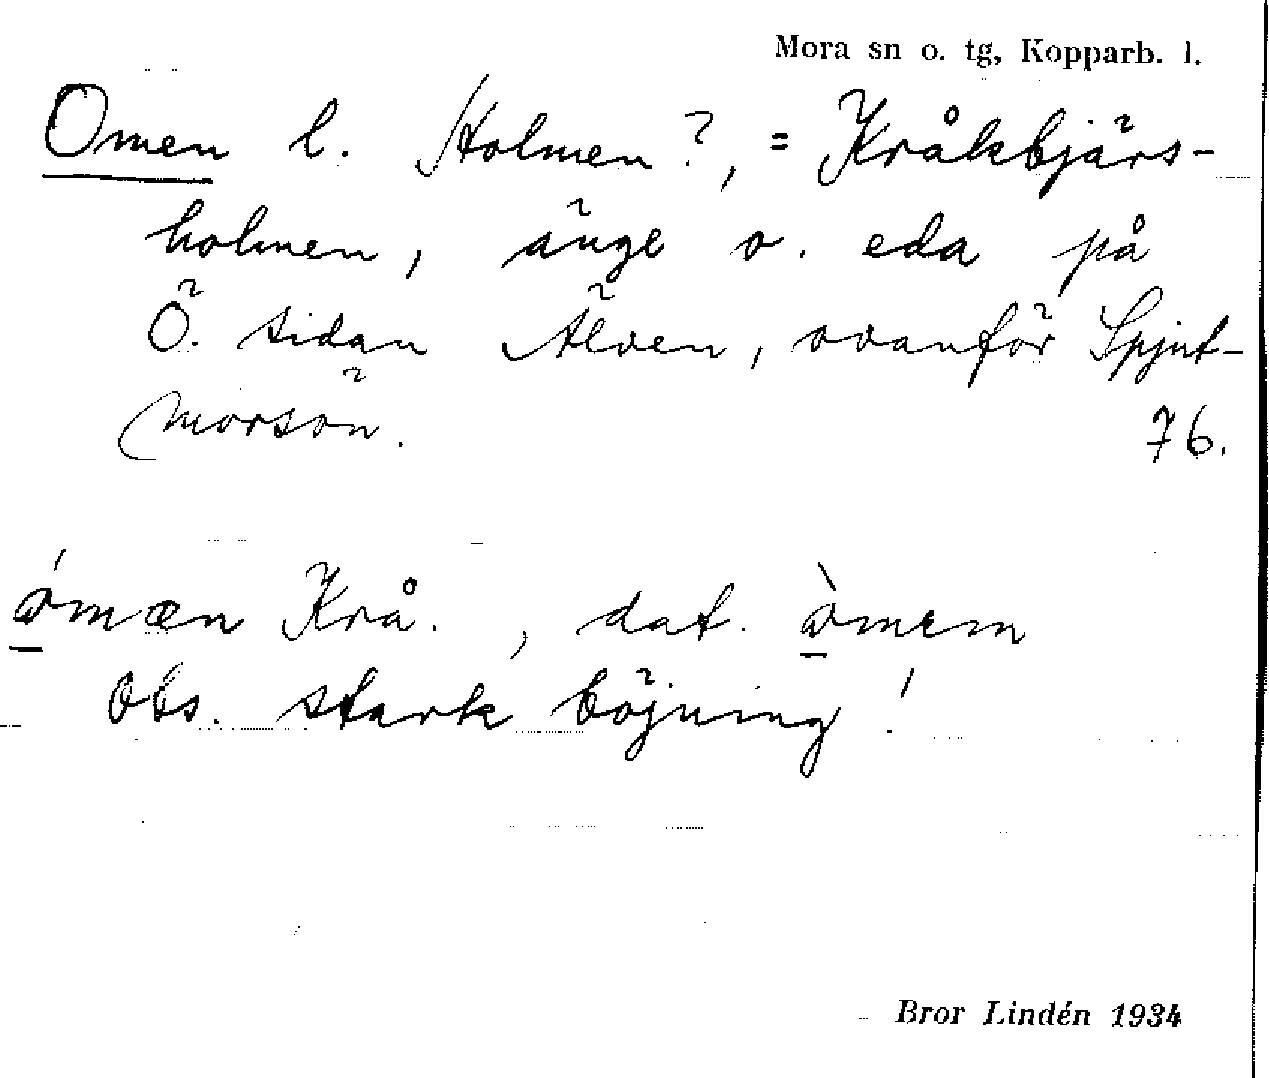 Mora sn o. tg, Kopparb. l.
Omen l. Holmen?, = Kråkbjärs-
holmen, änge o. eda på
Ö. sidan Älven, ovanför Spjut-
morsön.
76.
ómæn Krå., dat. òmem
Obs. stark böjning!
Bror Lindén 1934